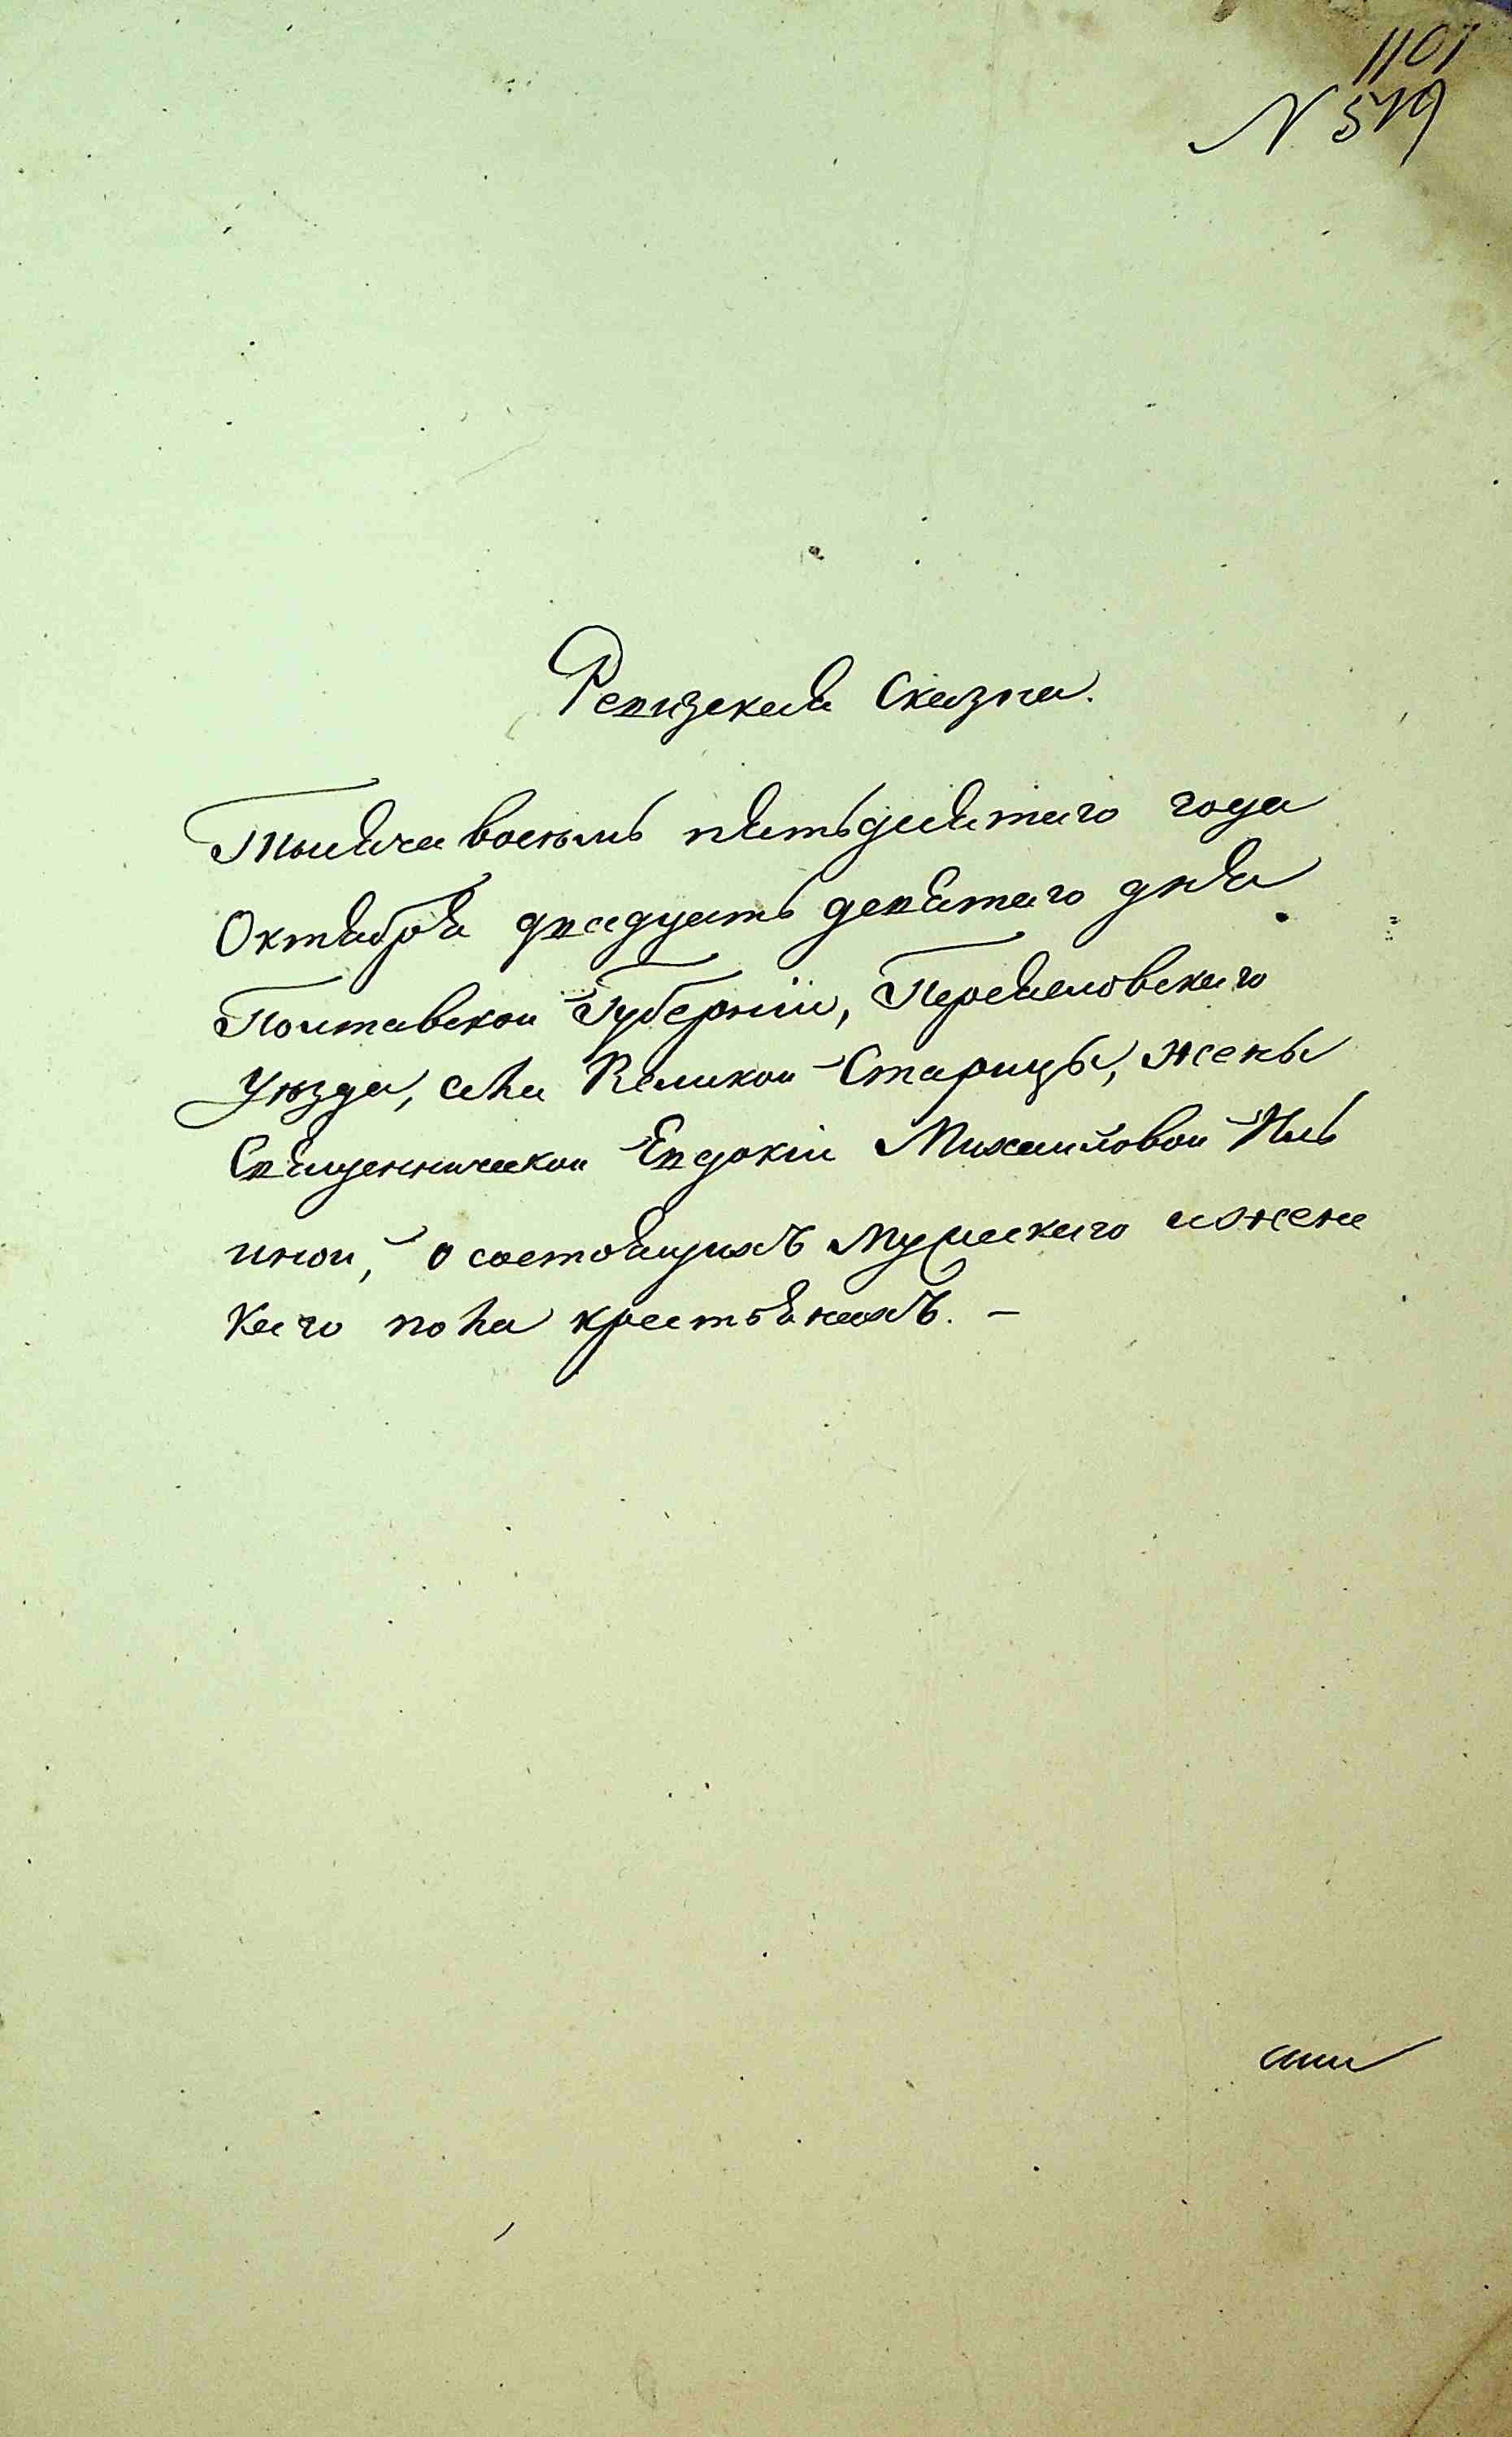 1101
N 579
Ревизская Сказка.
Тысяча восемь пятьдесятого года
Октября двадцать девятого дня
Полтавской Губерніи, Переясловского
Уѣзда, села Великой Старицы, жены
Священнической Евдокіи Михайловой Иль
иной, о состоящихъ мужеского и жене
каго пола крестьянахъ. –